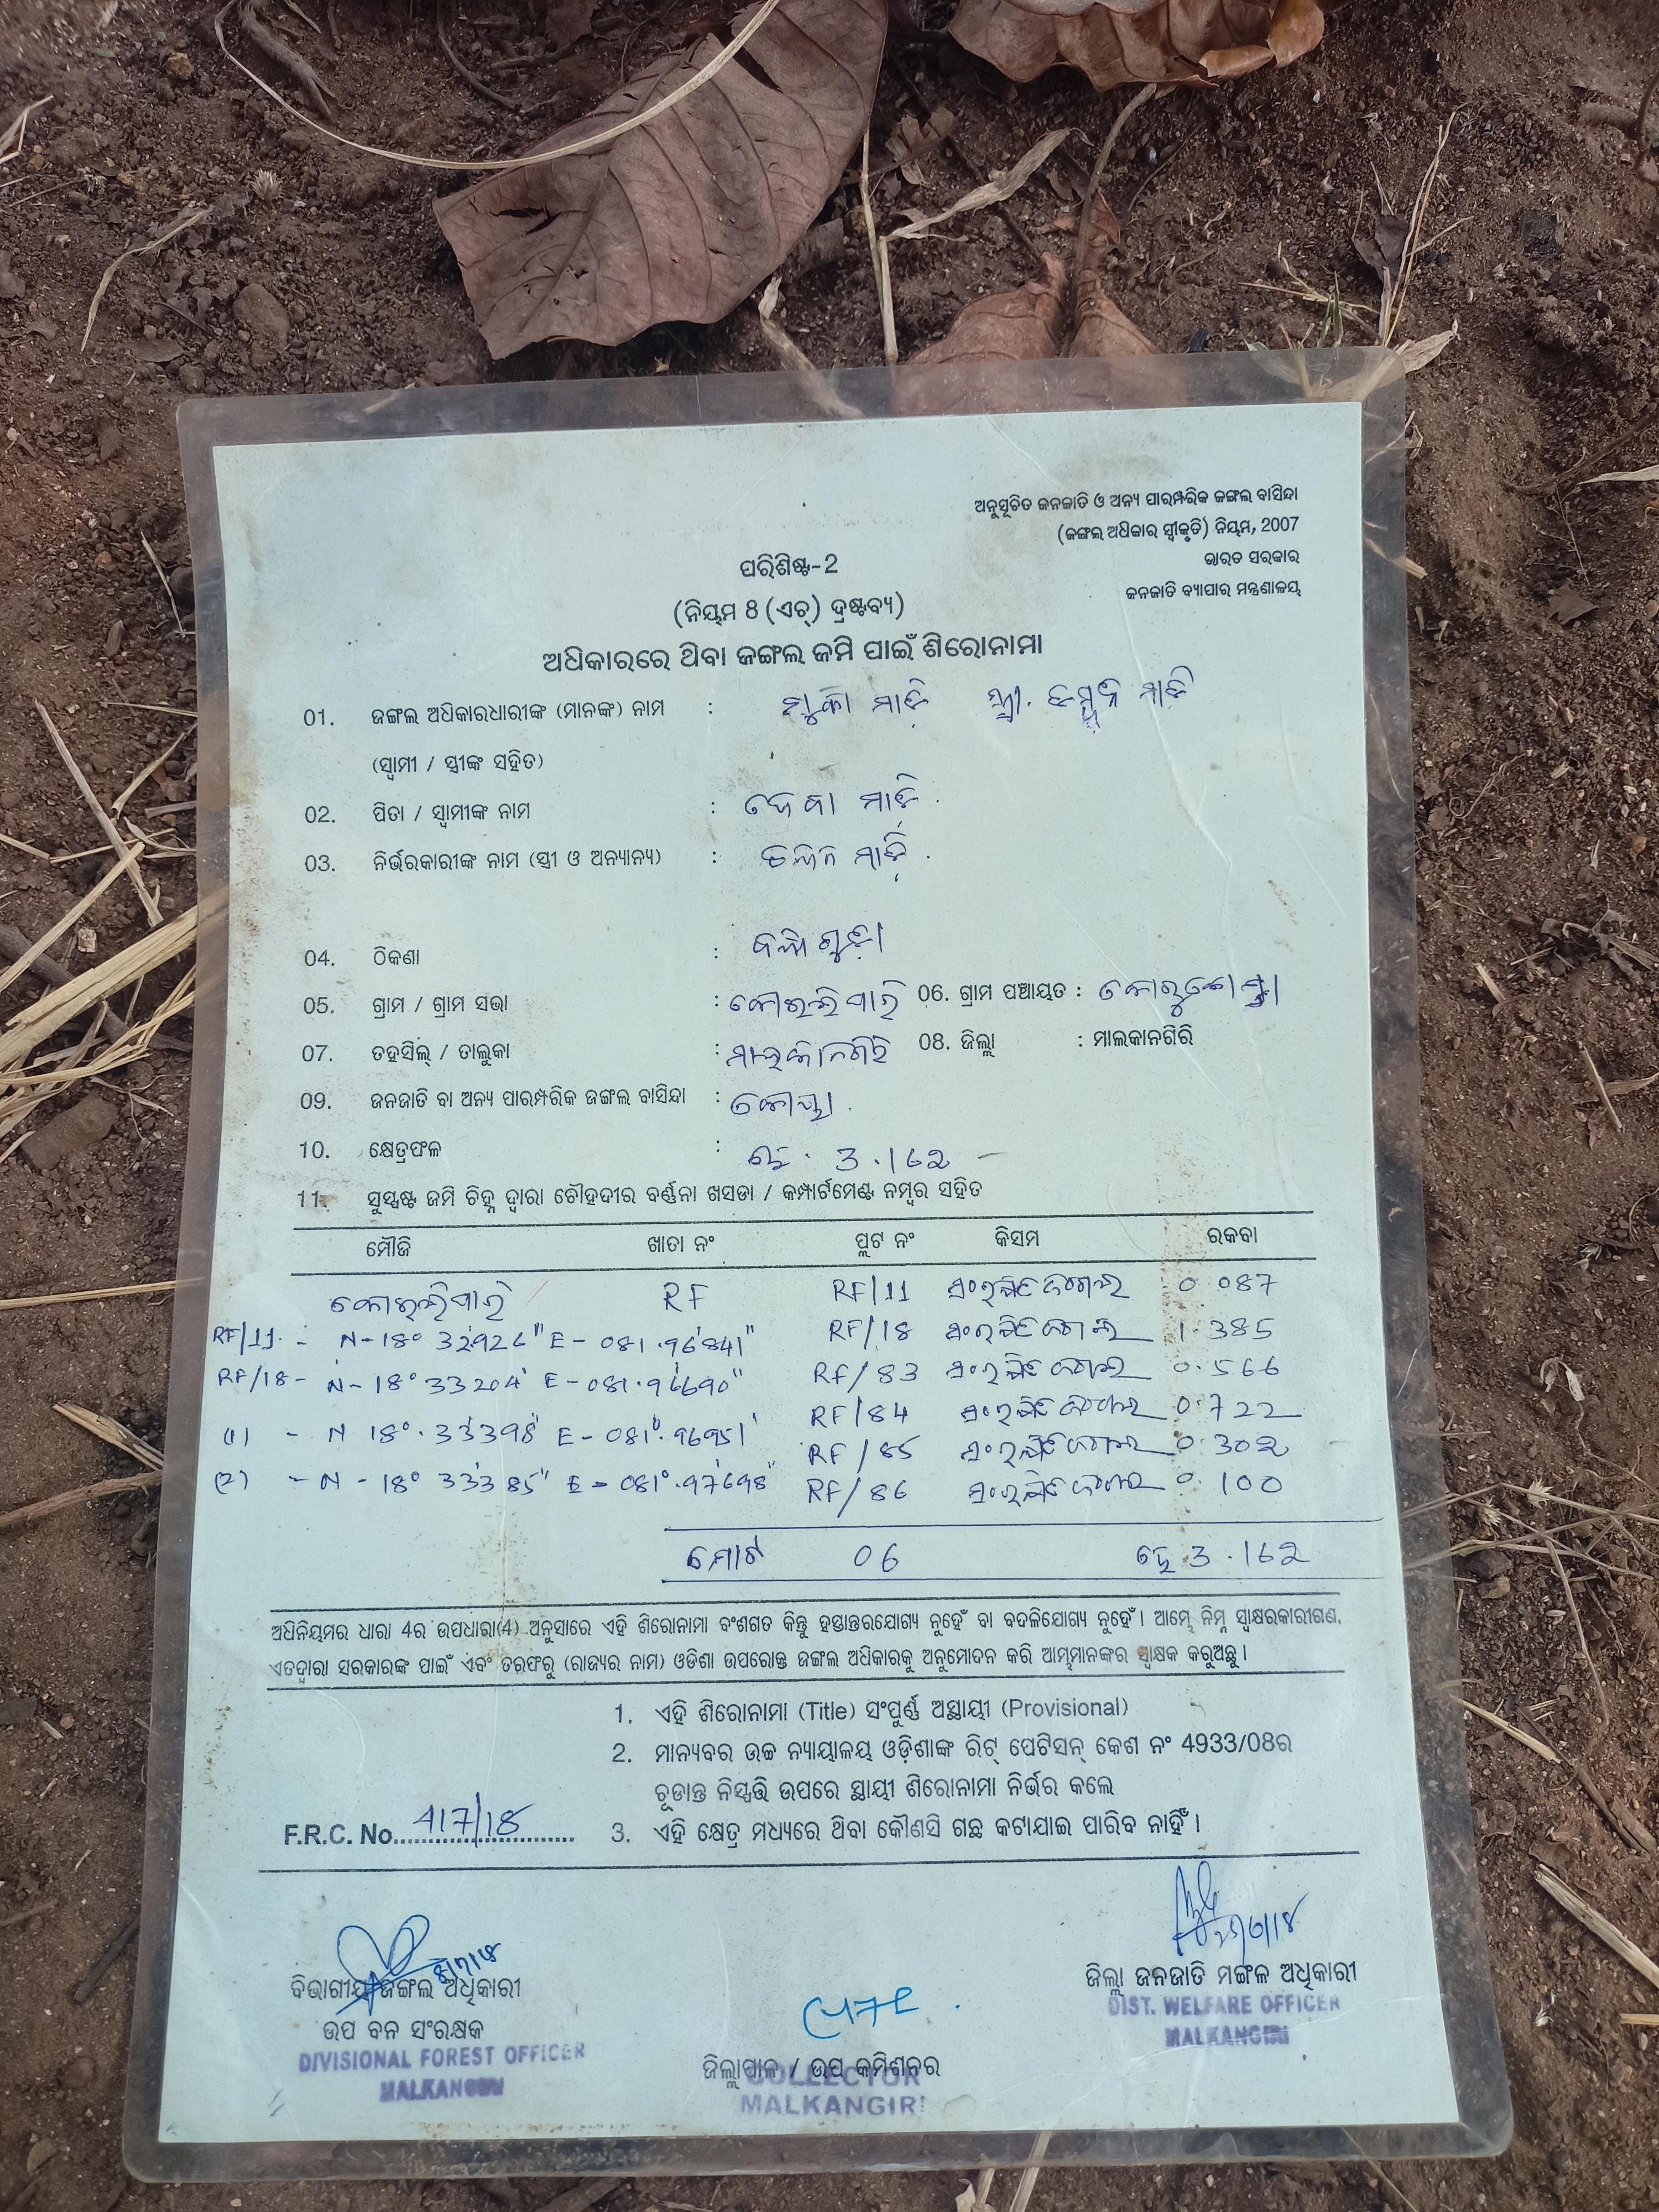 ଅନୁସୂଚିତ ଜନଜାତି ଓ ଅନ୍ୟ ପାରମ୍ପରିକ ଜଙ୍ଗଲ ବାସିନ୍ଦା
(ଜଙ୍ଗଲ ଅଧିକାର ସ୍ୱୀକୃତି) ନିୟମ, 2007
ଭାରତ ସରକାର
ଜନଜାତି ବ୍ୟାପାର ମନ୍ତ୍ରଣାଳୟ
ପରିଶିଷ୍ଟ-2
(ନିୟମ 8 (ଏଚ୍) ଦ୍ରଷ୍ଟବ୍ୟ)
ଅଧିକାରରେ ଥିବା ଜଙ୍ଗଲ ଜମି ପାଇଁ ଶିରୋନାମା
01. ଜଙ୍ଗଲ ଅଧିକାରଧାରୀଙ୍କ (ମାନଙ୍କ) ନାମ : ମାଡ଼ି ସ୍ତ୍ରୀ. ମାଡ଼ି
(ସ୍ୱାମୀ / ସ୍ତ୍ରୀଙ୍କ ସହିତ)
02. ପିତା / ସ୍ୱାମୀଙ୍କ ନାମ : ଦେବା ମାଡ଼ି
03. ନିର୍ଭରକାରୀଙ୍କ ନାମ (ସ୍ତ୍ରୀ ଓ ଅନ୍ୟାନ୍ୟ) : ମାଡ଼ି
04. ଠିକଣା :
05. ଗ୍ରାମ / ଗ୍ରାମ ସଭା : 06. ଗ୍ରାମ ପଞ୍ଚାୟତ : କୋରୁକୋଣ୍ଡା
07. ତହସିଲ୍ / ତାଲୁକା : ମାଲକାନଗିରି 08. ଜିଲ୍ଲା : ମାଲକାନଗିରି
09. ଜନଜାତି ବା ଅନ୍ୟ ପାରମ୍ପରିକ ଜଙ୍ଗଲ ବାସିନ୍ଦା : କୋୟା
10. କ୍ଷେତ୍ରଫଳ : ହେ. 3.162
11. ସୁସ୍ପଷ୍ଟ ଜମି ଚିହ୍ନ ଦ୍ୱାରା ଚୌହଦୀର ବର୍ଣ୍ଣନା ଖସଡା / କମ୍ପାର୍ଟମେଣ୍ଟ ନମ୍ବର ସହିତ
ମୌଜି ଖାତା ନଂ ପ୍ଲଟ ନଂ କିସମ ରକବା
RF RF/11 ସଂରକ୍ଷିତ ଜଙ୍ଗଲ 0.087
RF/11. - N-18° 32926" E-081.96841" RF/18 ସଂରକ୍ଷିତ ଜଙ୍ଗଲ 1.385
RF/18 - N-18° 33204 E-081.96690" RF/83 ସଂରକ୍ଷିତ ଜଙ୍ଗଲ 0.566
(1) - N 18°.33398 E-081°.96951 RF/84 ସଂରକ୍ଷିତ ଜଙ୍ଗଲ 0.722
RF/85 ସଂରକ୍ଷିତ ଜଙ୍ଗଲ 0.302
(2) - N-18° 33385" E-081°.97698" RF/86 ସଂରକ୍ଷିତ ଜଙ୍ଗଲ 0.100
ମୋଟ 06 ହେ 3.162
ଅଧିନିୟମର ଧାରା 4ର ଉପଧାରା(4) ଅନୁସାରେ ଏହି ଶିରୋନାମା ବଂଶଗତ କିନ୍ତୁ ହସ୍ତାନ୍ତରଯୋଗ୍ୟ ନୁହେଁ ବା ବଦଳିଯୋଗ୍ୟ ନୁହେଁ। ଆମ୍ଭେ ନିମ୍ନ ସ୍ୱାକ୍ଷରକାରୀଗଣ,
ଏତଦ୍ୱାରା ସରକାରଙ୍କ ପାଇଁ ଏବଂ ତରଫରୁ (ରାଜ୍ୟର ନାମ) ଓଡିଶା ଉପରୋକ୍ତ ଜଙ୍ଗଲ ଅଧିକାରକୁ ଅନୁମୋଦନ କରି ଆମ୍ଭମାନଙ୍କର ସ୍ୱାକ୍ଷକ କରୁଅଛୁ।
1. ଏହି ଶିରୋନାମା (Title) ସଂପୂର୍ଣ୍ଣ ଅସ୍ଥାୟୀ (Provisional)
2. ମାନ୍ୟବର ଉଚ୍ଚ ନ୍ୟାୟାଳୟ ଓଡ଼ିଶାଙ୍କ ରିଟ୍ ପେଟିସନ୍ କେଶ ନଂ 4933/08ର
ଚୂଡାନ୍ତ ନିସ୍ପତ୍ତି ଉପରେ ସ୍ଥାୟୀ ଶିରୋନାମା ନିର୍ଭର କଲେ
F.R.C. No. 417/18 3. ଏହି କ୍ଷେତ୍ର ମଧ୍ୟରେ ଥିବା କୌଣସି ଗଛ କଟାଯାଇ ପାରିବ ନାହିଁ।
ବିଭାଗୀୟ ଜଙ୍ଗଲ ଅଧିକାରୀ
ଉପ ବନ ସଂରକ୍ଷକ
DIVISIONAL FOREST OFFICER
MALKANGIRI
ଜିଲ୍ଲାପାଳ / ଉପ କମିଶନର
COLLECTOR
MALKANGIRI
ଜିଲ୍ଲା ଜନଜାତି ମଙ୍ଗଳ ଅଧିକାରୀ
DIST. WELFARE OFFICER
MALKANGIRI